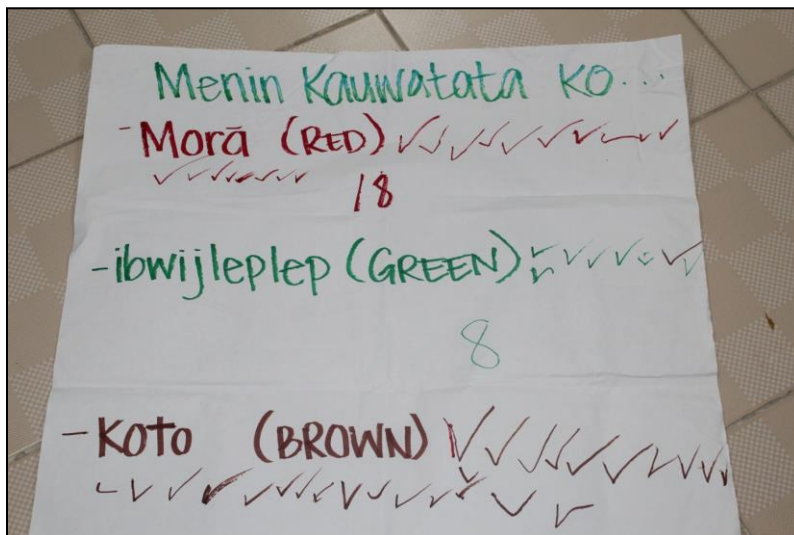 Menin Kauwatata KO...
- Morā (RED) ✓✓✓✓✓✓✓✓✓
✓✓✓✓✓✓✓
18
- ibwijleplep (GREEN) ✓✓✓✓✓✓✓✓
8
- KOTO (BROWN) ✓✓✓✓✓✓✓✓✓
✓✓✓✓✓✓✓✓✓✓✓✓✓✓✓